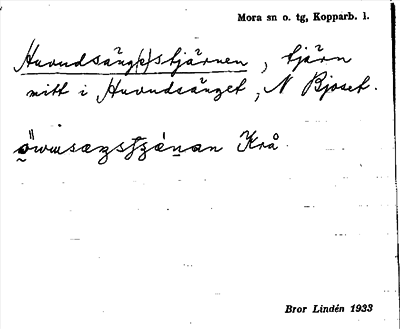 Mora sn o. tg, Kopparb. l.
Huvudsäng(e)stjärnen, tjärn
mitt i Huvudsänget, N Bjoset.
Krå
Bror Lindén 1933